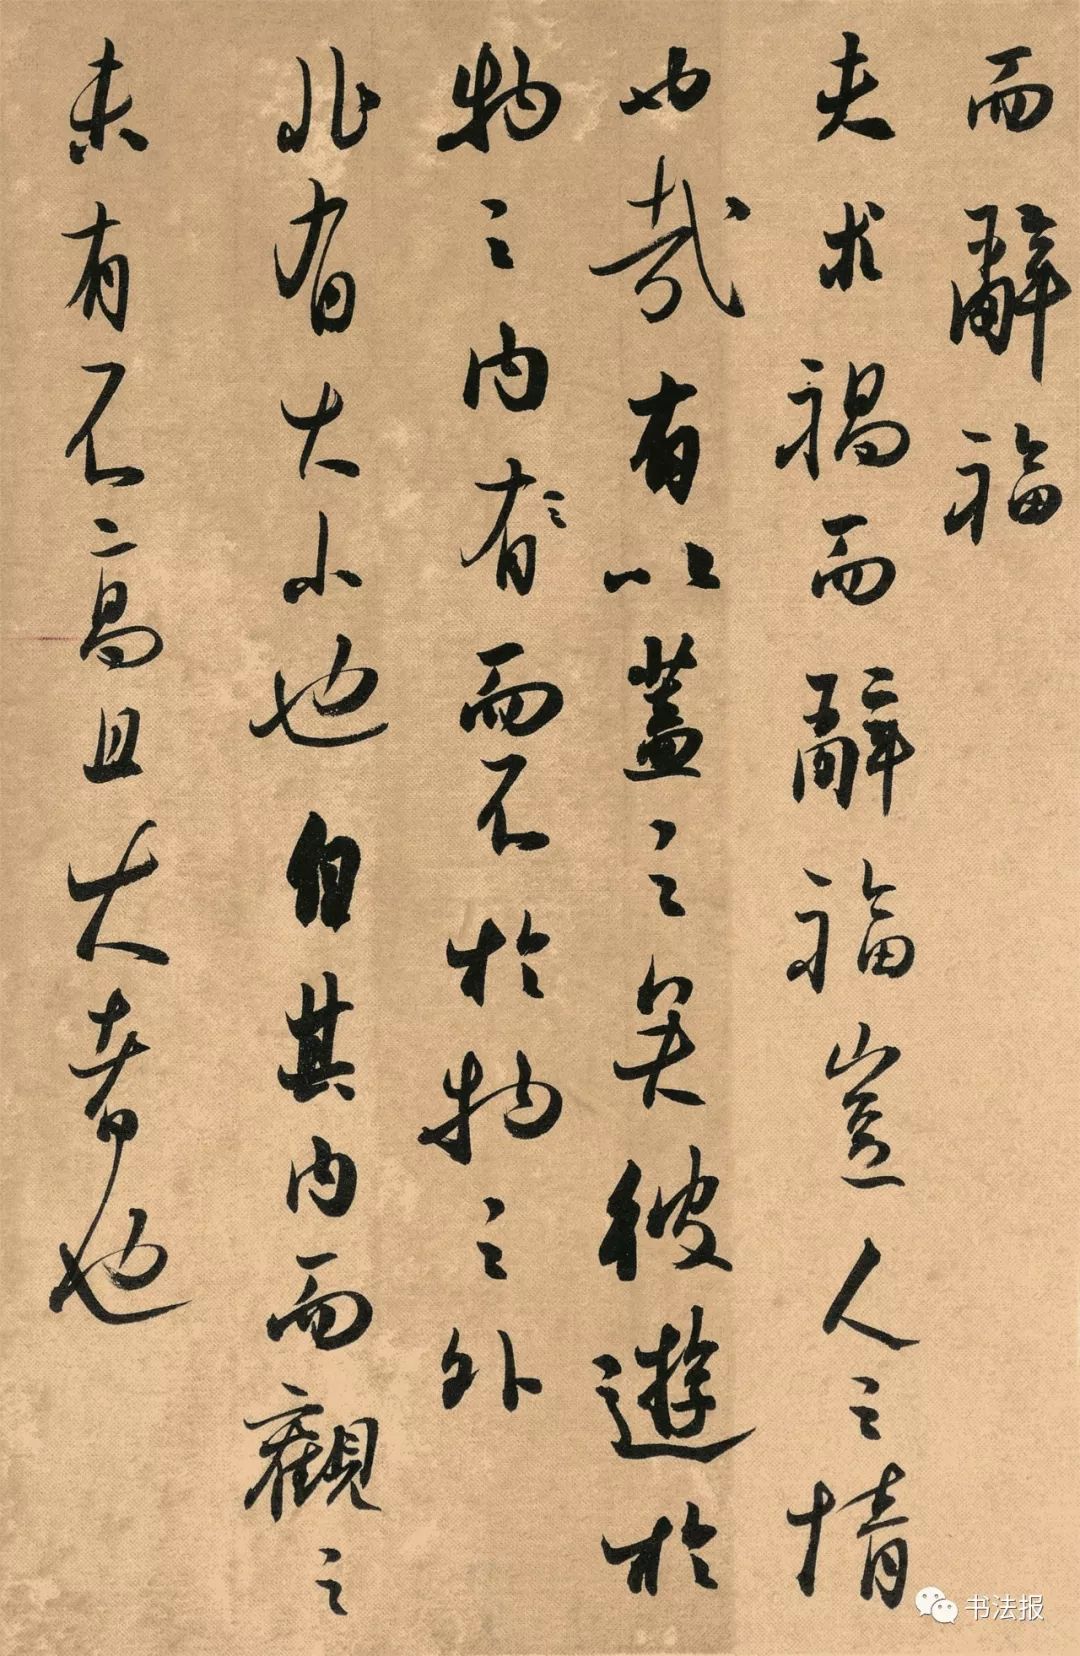 而辭福
夫求禍而辭福豈人之情
也哉有以蓋之矣彼遊於
物之內有而不於物之外
非有大小也自其內而觀之
未有不高且大者也
书法报